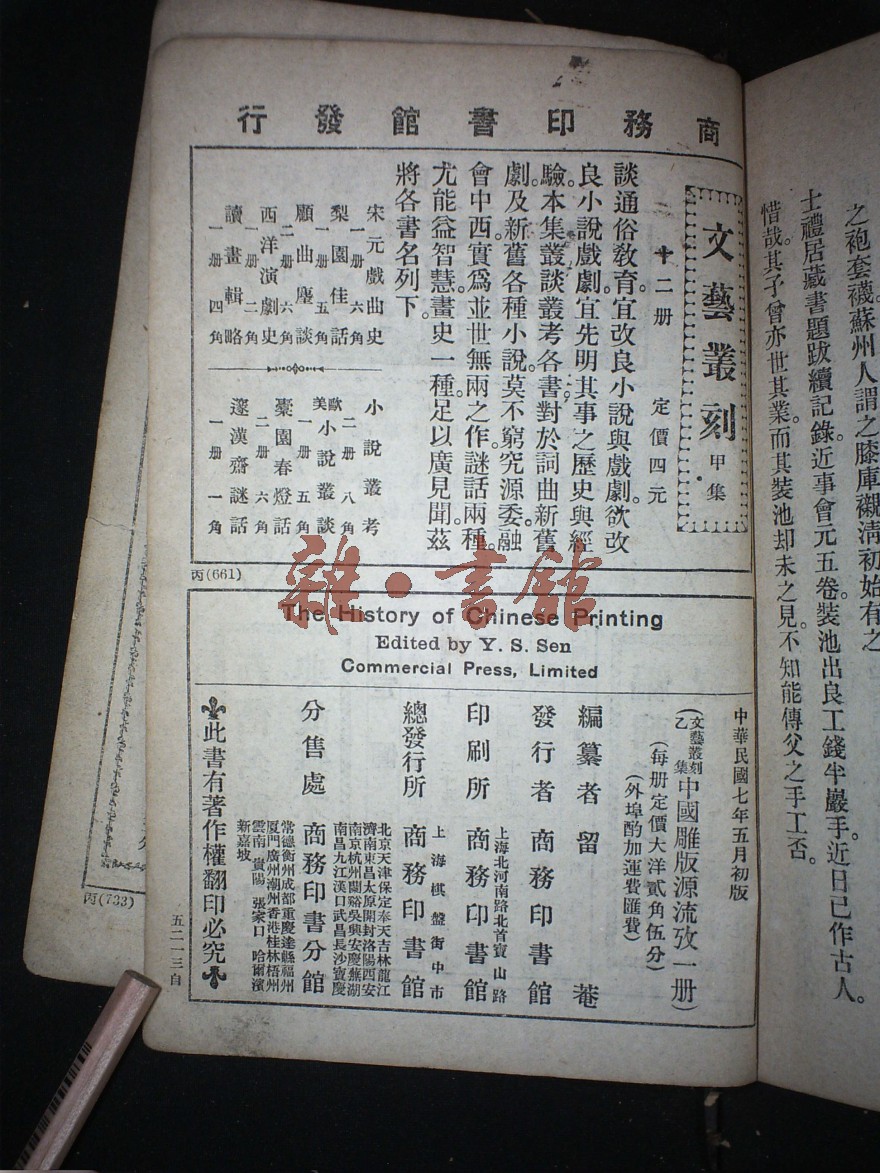 之袍套襪。蘇州人謂之膝庫襯清初始有之
士禮居藏書題跋續記錄。近事會元五卷。裝池出良工錢半巖手。近日已作古人。
惜哉。其子曾亦世其業。而其裝池却未之見。不知能傳父之手工否。
商務印書館發行
文藝叢刻 甲集
十二册 定價四元
談通俗敎育。宜改良小說與戲劇。欲改
良小說戲劇。宜先明其事之歷史與經
驗。本集叢談叢考各書。對於詞曲新舊
劇。及新舊各種小說。莫不窮究源委。融
會中西。實爲並世無兩之作。謎話兩種。
尤能益智慧。畫史一種。足以廣見聞。茲
將各書名列下。
宋元戲曲史
一册 六角
梨園佳話
一册 五角
顧曲麈談
二册 六角
西洋演劇史
一册 二角
讀畫輯略
一册 四角
小說叢考
二册 八角
歐美小說叢談
一册 五角
槖園春燈話
二册 六角
邃漢齋謎話
一册 一角
丙(661)
The History of Chinese Printing
Edited by Y. S. Sen
Commercial Press, Limited
中華民國七年五月初版
(文藝叢刻乙集 中國雕版源流攷一册)
(每册定價大洋貳角伍分)
(外埠酌加運費匯費)
編纂者 留菴
發行者 商務印書館
上海北河南路北首寶山路
印刷所 商務印書館
上海棋盤街中市
總發行所 商務印書館
北京天津保定奉天吉林龍江
濟南東昌太原開封洛陽西安
南京杭州蘭谿吳興安慶蕪湖
南昌九江漢口武昌長沙寶慶
分售處 商務印書分館
常德衡州成都重慶達縣福州
厦門廣州潮州香港桂林梧州
雲南 貴陽 張家口 哈爾濱
新嘉坡
此書有著作權翻印必究
五二一三自
丙(733)
雜·書館